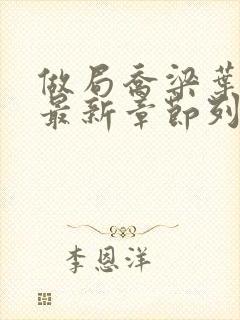 做局乔梁葉
最新章節列
李恩洋